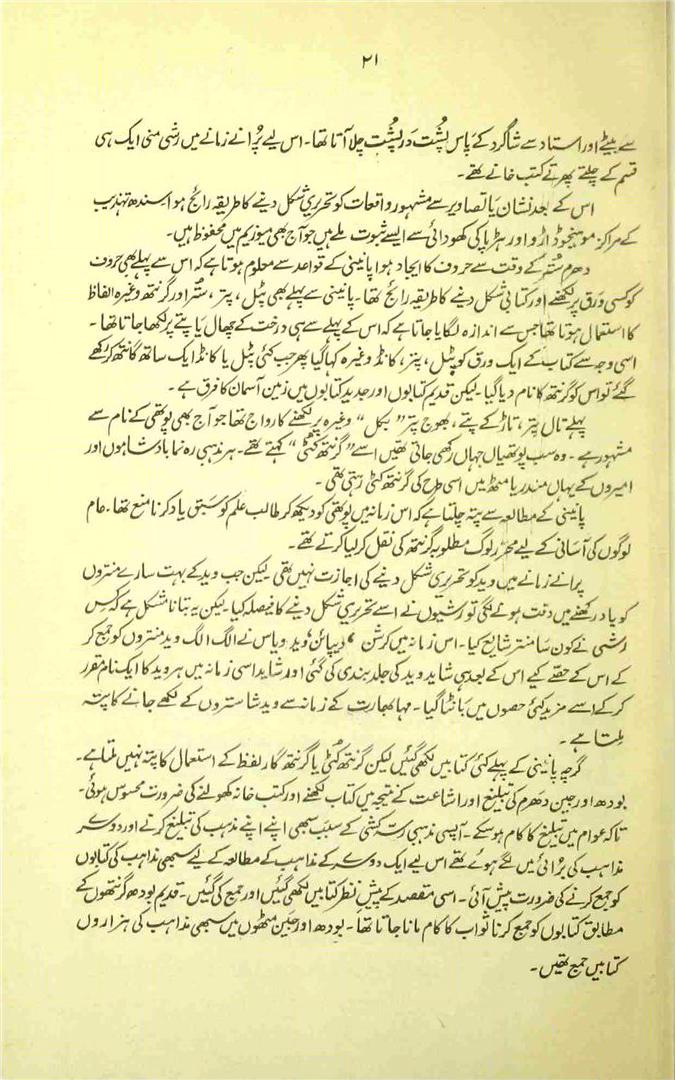 ۲۱
سے بیٹے اور استاد سے شاگرد کے پاس پُشت در پُشت چلا آتا تھا۔ اس لیے پُرانے زمانے میں رشی منی ایک ہی
قسم کے چلتے پھرتے کتب خانے تھے۔
اس کے بعد نشان یا تصاویر سے مشہور واقعات کو تحریری شکل دینے کا طریقہ رائج ہوا۔ سندھ تہذیب
کے مراکز موہنجوڈاڑو اور ہڑپا کی کھودائی سے ایسے ثبوت ملے ہیں جو آج بھی میوزیم میں محفوظ ہیں۔
دھرم سُتر کے وقت سے حروف کا ایجاد ہوا پانینی کے قواعد سے معلوم ہوتا ہے کہ اس سے پہلے بھی حروف
کو کسی ورق پر لکھنے اور کتابی شکل دینے کا طریقہ رائج تھا۔ پانینی سے پہلے بھی پٹل، پتر، سُتر اور گرنتھ وغیرہ الفاظ
کا استعمال ہوتا تھا جس سے اندازہ لگایا جاتا ہے کہ اس کے پہلے سے ہی درخت کے چھال یا پتے پر لکھا جاتا تھا۔
اسی وجہ سے کتاب کے ایک ورق کو پٹل، پتر، کانڈ وغیرہ کہا گیا پھر جب کئی پٹل یا کانڈ ایک ساتھ گانٹھ کر رکھے
گئے تو اس کو گرنتھ کا نام دیا گیا۔ لیکن قدیم کتابوں اور جدید کتابوں میں زمین آسمان کا فرق ہے۔
پہلے تال پتر، تاڑ کے پتے، بھوج پتر ”بکل“ وغیرہ پر لکھنے کا رواج تھا جو آج بھی پوتھی کے نام سے
مشہور ہے۔ وہ سب پوتھیاں جہاں رکھی جاتی تھیں اسے ”گرنتھ کٹی“ کہتے تھے۔ ہر مذہبی رہنما بادشاہوں اور
امیروں کے یہاں مندر یا مٹھ میں اسی طرح کی گرنتھ کٹی رہتی تھی۔
پانینی کے مطالعہ سے پتہ چلتا ہے کہ اس زمانہ میں پوتھی کو دیکھ کر طالب علم کو سبق یاد کرنا منع تھا۔ عام
لوگوں کی آسانی کے لیے محرر لوگ مطلوبہ گرنتھ کی نقل کر لیا کرتے تھے۔
پرانے زمانے میں وید کو تحریری شکل دینے کی اجازت نہیں تھی لیکن جب وید کے بہت سارے منتروں
کو یاد رکھنے میں دقت ہونے لگی تو رشیوں نے اسے تحریری شکل دینے کا فیصلہ کیا۔ لیکن یہ بتانا مشکل ہے کہ کس
رشی نے کون سا منتر شایع کیا۔ اس زمانہ میں کرشن ، دیپائن وید ویاس نے الگ الگ وید منتروں کو جمع کر
کے اس کے حصے کیے اس کے بعد ہی شاید وید کی جلد بندی کی گئی اور شاید اسی زمانہ میں ہر وید کا ایک نام مقرر
کر کے اسے مزید کئی حصوں میں بانٹا گیا۔ مہا بھارت کے زمانہ سے وید شاستروں کے لکھے جانے کا پتہ
ملتا ہے۔
گرچہ پانینی کے پہلے کئی کتابیں لکھی گئیں لیکن گرنتھ کُٹی یا گرنتھ گار لفظ کے استعمال کا پتہ نہیں ملتا ہے۔
بودھ اور جین دھرم کی تبلیغ اور اشاعت کے نتیجہ میں کتاب لکھنے اور کتب خانہ کھولنے کی ضرورت محسوس ہوئی۔
تاکہ عوام میں تبلیغ کا کام ہو سکے۔ آپسی مذہبی رسہ کشی کے سبب سبھی اپنے اپنے مذہب کی تبلیغ کرنے اور دوسرے
مذاہب کی بُرائی میں لگے ہوئے تھے اس لیے ایک دوسرے کے مذاہب کے مطالعہ کے لیے سبھی مذاہب کی کتابوں
کو جمع کرنے کی ضرورت پیش آئی۔ اسی مقصد کے پیش نظر کتابیں لکھی گئیں اور جمع کی گئیں۔ قدیم بودھ گرنتھوں کے
مطابق کتابوں کو جمع کرنا ثواب کا کام مانا جاتا تھا۔ بودھ اور جین مٹھوں میں سبھی مذاہب کی ہزاروں
کتابیں جمع تھیں۔